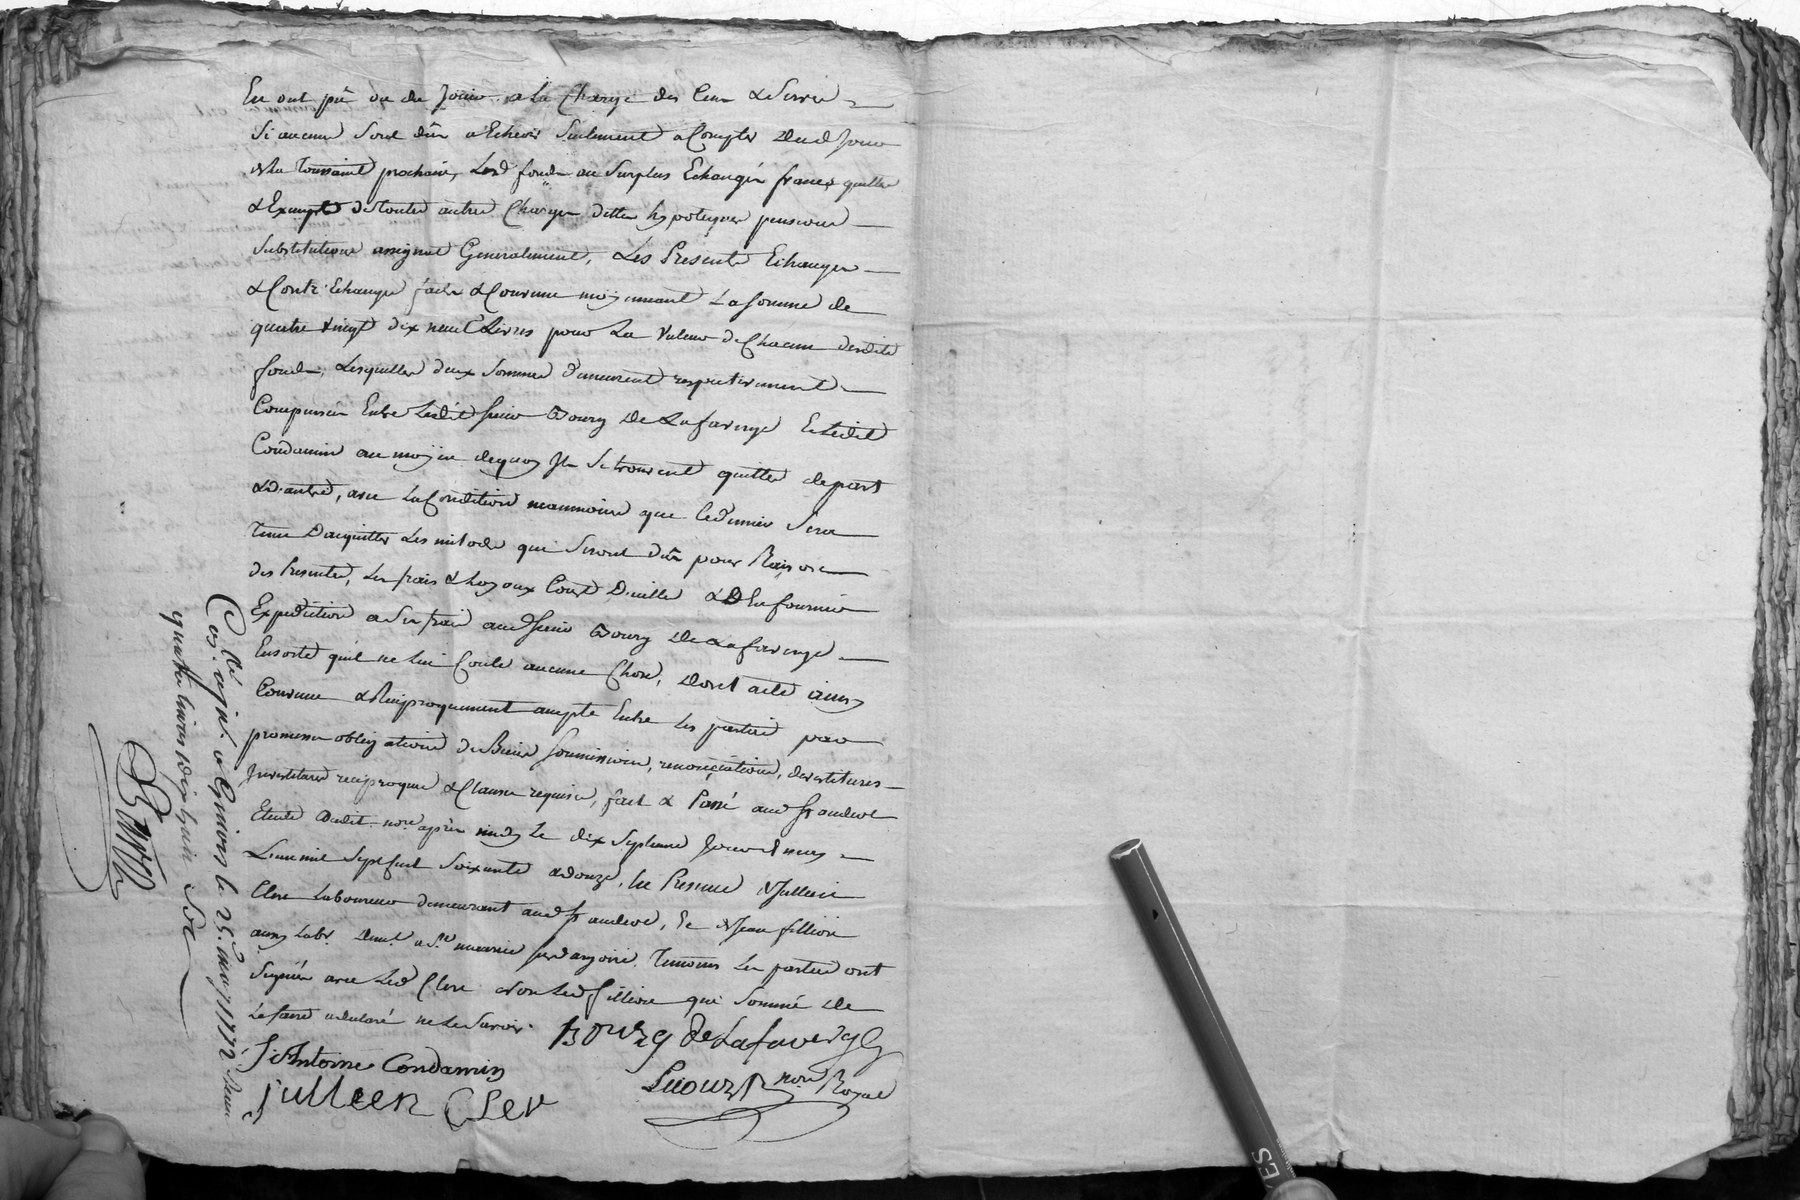 En ont pû ou du Jouir a La Charge des Cens & Servis
Si aucuns Sont dûs a Echeoir Seulement a Compter dud Jour
& la Toussaint prochaine, Lesd fonds au Surplus Echangés francs quittes
& Exempts de toutes autres Charges dettes hypoteques pensions
Substitutions assignat Generalement, Les Presents Echanges
& Contr'Echanges faits & Convenus moyennant La somme de
quatre vingt dix neuf Livres pour La Valeur de Chacun desdits
fonds, Lesquelles deux Sommes demeurent respectivement
Compensées Entre Ledit sieur Bourg De Lafaverge Et Ledit
Condamin au moyen dequoy Ils Se trouvent quittes de part
& d'autre, avec La Condition neanmoins que le dernier Sera
Tenu Dacquitter Les milods qui Seront dûs pour Raison
des Presentes, Les frais & Loyaux Couts Dicelles & D En fournir
Expedition a Ses frais aud sieur Bourg De Lafaverge
Ensorte quil ne lui Coute aucune Chose, Dont acte ainsy
Convenu & Reciproquement accepté Entre Les parties par
promesses obligations de Biens soumissions, renonciations, devestitures
Investitures reciproques & Clauses requises, fait & Passé aud
Etude Dudit nore après midy Le dix Septieme Jour de may
L'an mil Sept Cent Soixante & douze, En Presence de Jullien
Cler Laboureur demeurant aud, & de Jean fillion
aussy Labr demt a Ste Temoins Les parties ont
Signées avec Led Cler & non Led fillion qui Sommé de
Le faire a declaré ne Le Savoir.
Bourg de Lafaverge
J Antoine Condamin
jullien Cler
nore Royal
Collé a le 25e may 1772
quatre livres dix huit Sols